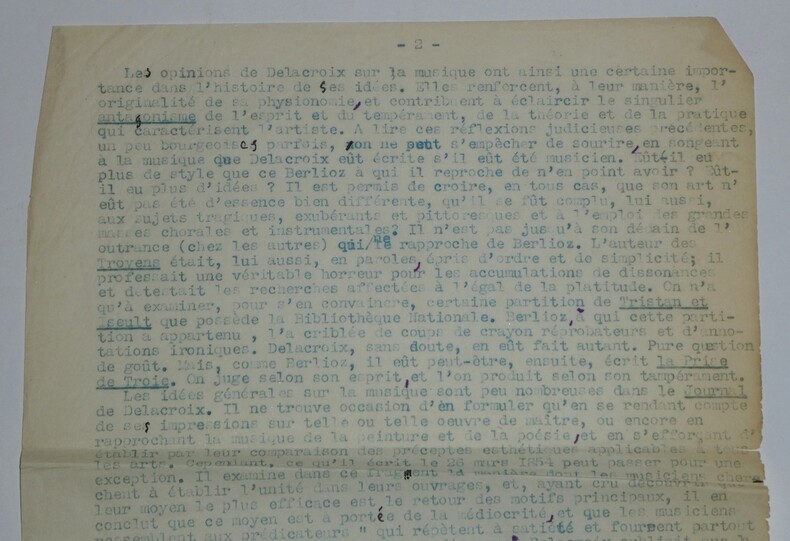 - 2 -
Les opinions de Delacroix sur la musique ont ainsi une certaine impor-
tance dans l'histoire de ses idées. Elles renforcent, à leur manière, l'
originalité de sa physionomie, et contribuent à éclaircir le singulier
antagonisme de l'esprit et du tempérament, de la théorie et de la pratique
qui caractérisent l'artiste. A lire ces réflexions judicieuses précédentes,
un peu bourgeoises parfois, on ne peut s'empêcher de sourire, en songeant
à la musique que Delacroix eût écrite s'il eût été musicien. Eût-il eu
plus de style que ce Berlioz à qui il reproche de n'en point avoir ? Eût-
il eu plus d'idées ? Il est permis de croire, en tous cas, que son art n'
eût pas été d'essence bien différente, qu'il se fût complu, lui aussi,
aux sujets tragiques, exubérants et pittoresques et à l'emploi des grandes
masses chorales et instrumentales? Il n'est pas jusqu'à son dédain de l'
outrance (chez les autres) qui/ne rapproche de Berlioz. L'auteur des
Troyens était, lui aussi, en paroles, épris d'ordre et de simplicité; il
professait une véritable horreur pour les accumulations de dissonances
et detestait les recherches affectées à l'égal de la platitude. On n'a
qu'à examiner, pour s'en convaincre, certaine partition de Tristan et
Iseult que possède la Bibliothèque Nationale. Berlioz, à qui cette parti-
tion a appartenu , l'a criblée de coups de crayon réprobateurs et d'anno-
tations ironiques. Delacroix, sans doute, en eût fait autant. Pure question
de goût. Mais, comme Berlioz, il eût peut-être, ensuite, écrit la Prise
de Troie. On juge selon son esprit, et l'on produit selon son tampérament.
Les idées générales sur la musique sont peu nombreuses dans le Journal
de Delacroix. Il ne trouve occasion d'en formuler qu'en se rendant compte
de ses impressions sur telle ou telle oeuvre de maître, ou encore en
rapprochant la musique de la peinture et de la poésie, et en s'efforçant d'
établir par leur comparaison des préceptes esthétiques applicables à
les arts. Cependant, ce qu'il écrit le 26 mars 1854 peut passer pour une
exception. Il examine dans ce fragment la manière dont les musiciens cher
chent à établir l'unité dans leurs ouvrages, et, ayant cru découvrir que
leur moyen le plus efficace est le retour des motifs principaux, il en
conclut que ce moyen est à portée de la médiocrité, et que les musiciens
ressemblent aux prédicateurs " qui répètent à satiété et fourrent partout
Delacroix